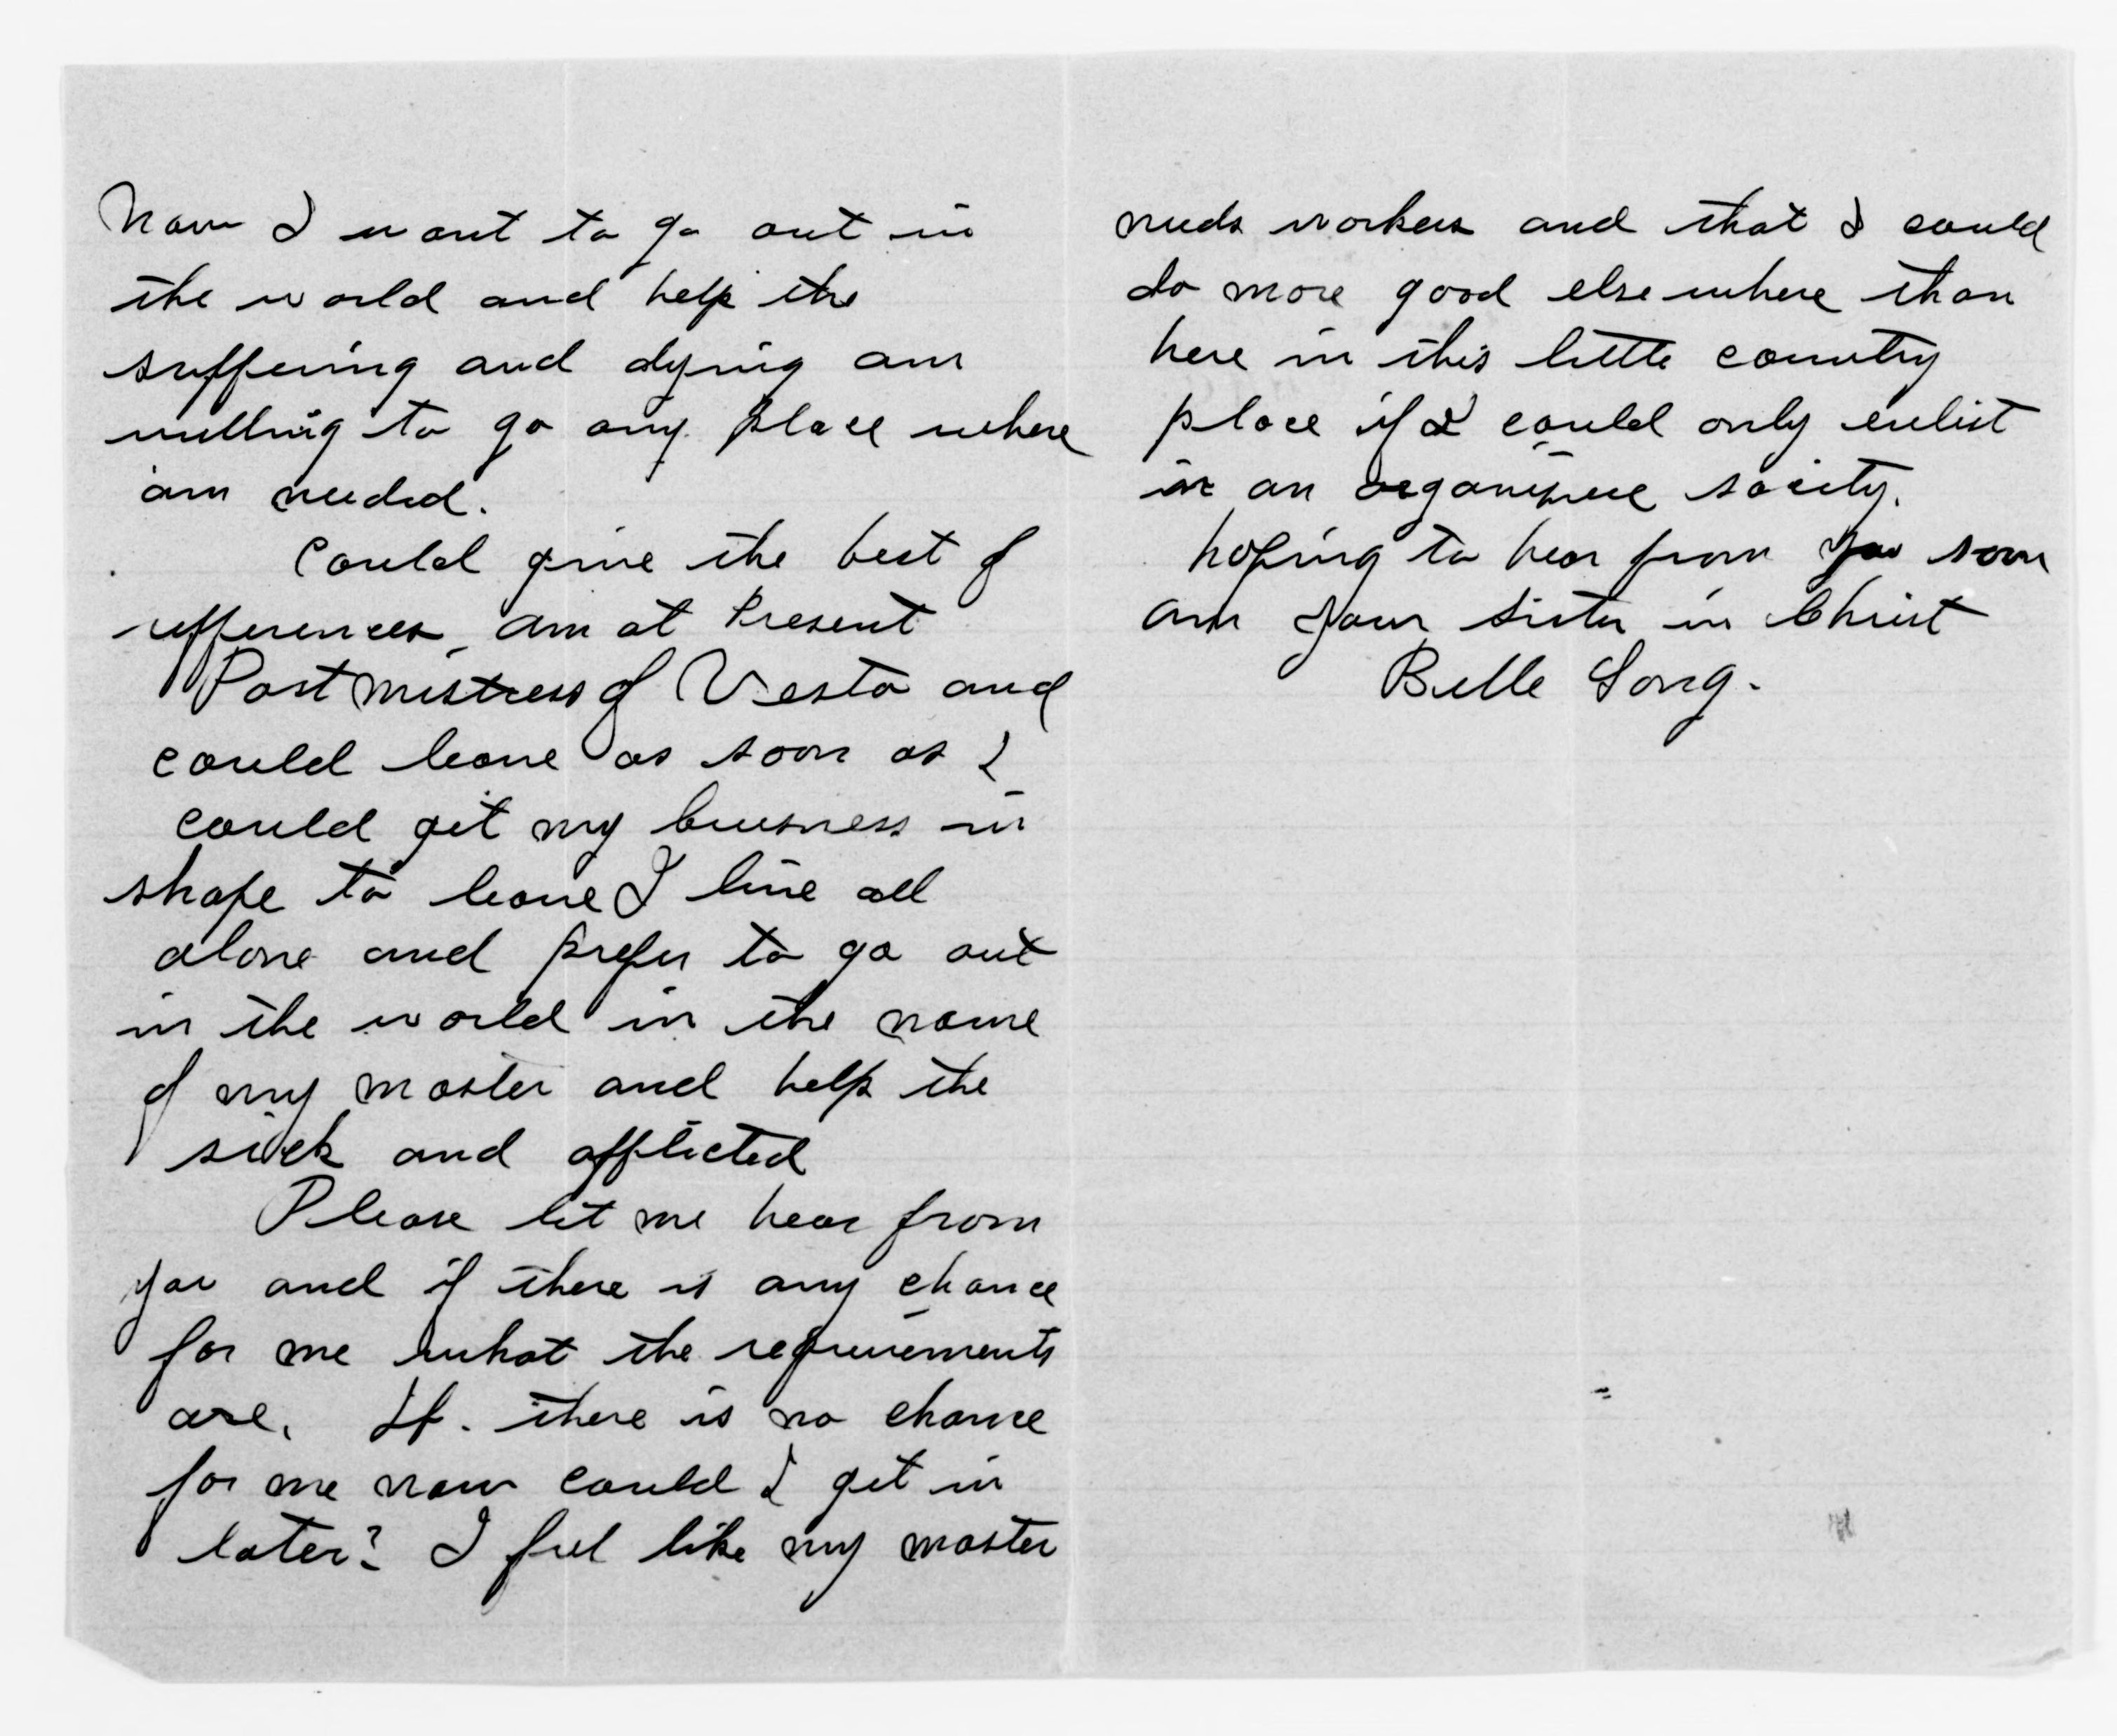 Now I want to go out in
the world and help the
suffering and dying am
willing to go any place where
am needed.
Could give the best of
refferences am at Present
Postmistress of Vesta and
could leave as soon as I
could get my buisness in
shape to leave I live all
alone and prefer to go out
in the world in the name
of my master and help the
sick and afflicted
Please let me hear from
you and if there is any chance
for me what the requirements
are. If. there is no chance
for me now could I get in
later? I feel like my master
needs workers and that I could
do more good elsewhere than
here in this little country
place if I could only enlist
in an society.
hoping to hear from you soon
am your sister in Christ
Belle Long.